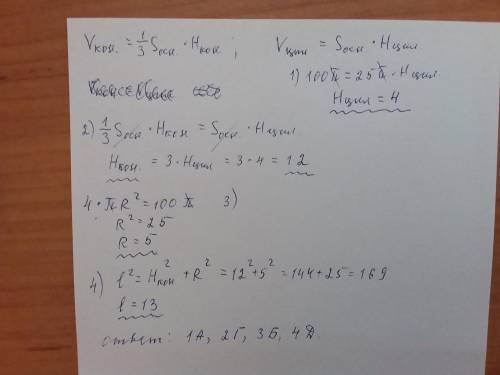 Vкон. = 1/3 Sосн. · Hкон. ; Vцил = Sосн. · Hцил.
1) 100π = 25π · Hцил.
Hцил = 4
2) 1/3 Sосн. · Hкон = Sосн. · Hцил
Hкон. = 3 · Hцил = 3 · 4 = 12
4 · πR² = 100π 3)
R² = 25
R = 5
4) l² = H²кон + R² = 12² + 5² = 144 + 25 = 169
l = 13
ответ: 1А, 2Г, 3Б, 4Д.